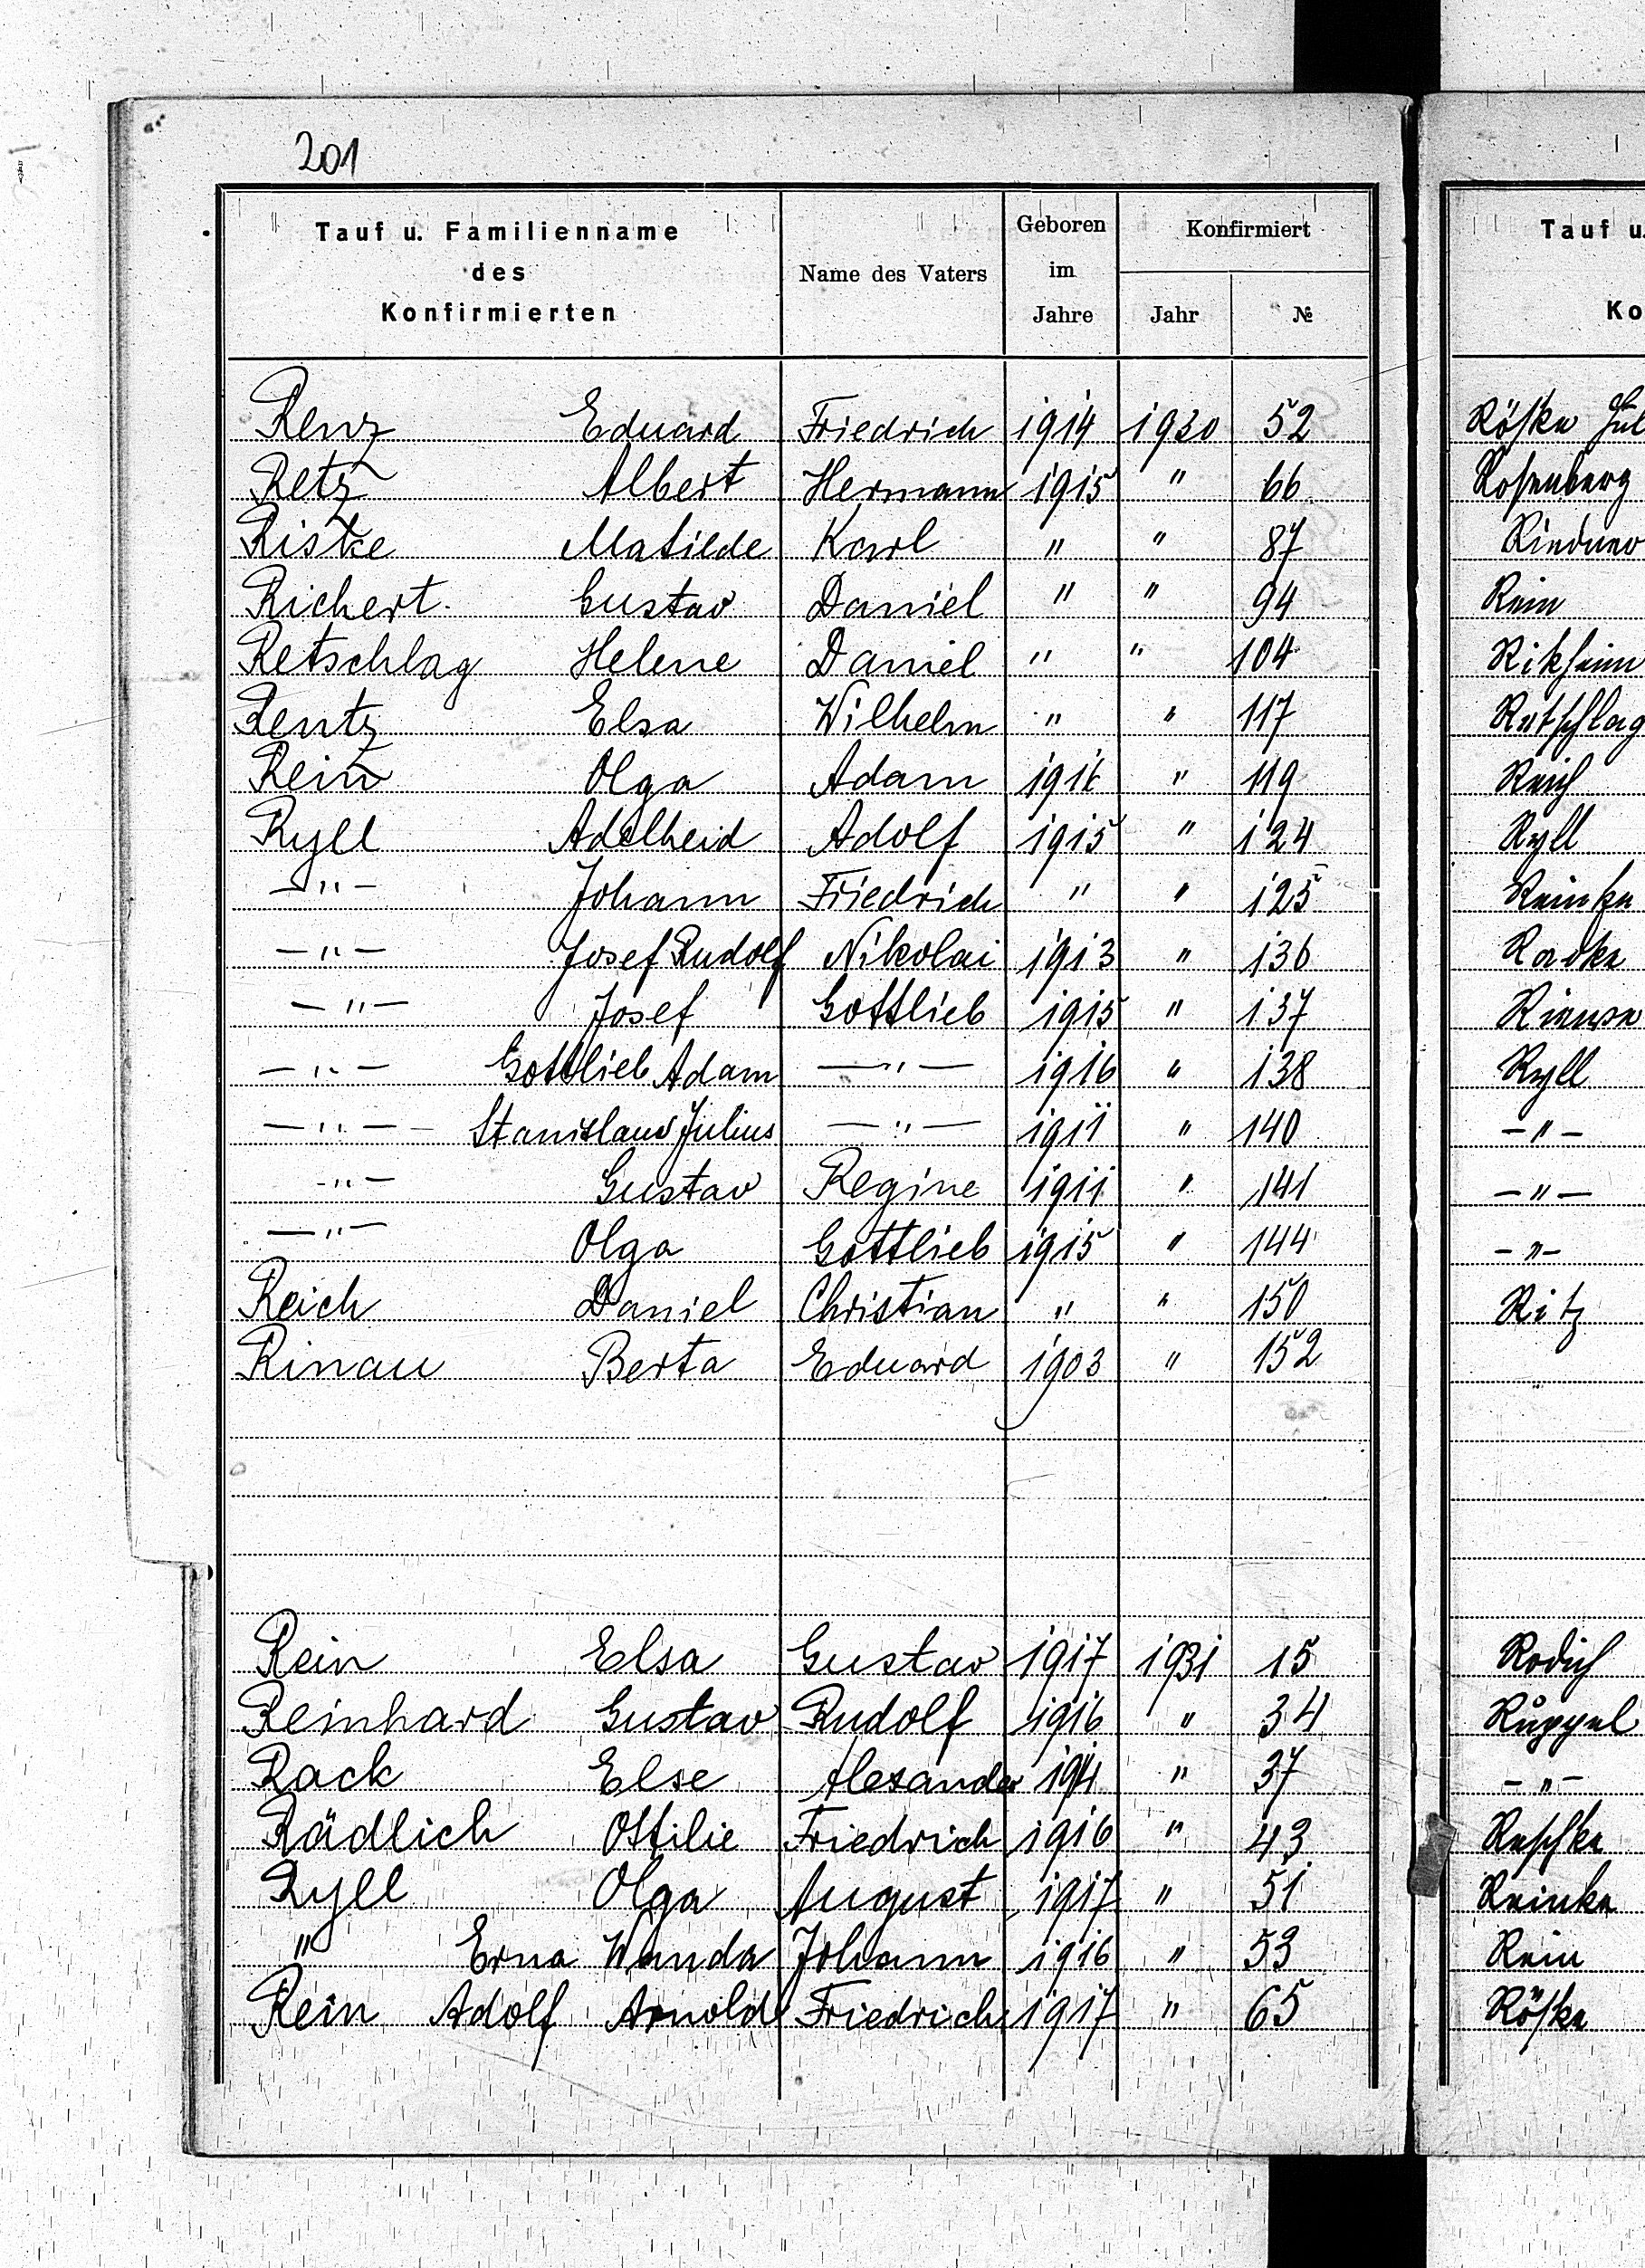 201
Tauf u. Familienname des Konfirmierten | Name des Vaters | Geboren im Jahre | Konfirmiert Jahr | №
Renz Eduard Friedrich 1914 1930 52
Retz Albert Hermann 1915 " 66
Ristke Matilde Karl " " 87
Richert Gustav Daniel " " 94
Retschlag Helene Daniel " " 104
Rentz Elsa Wilhelm " " 117
Rein Olga Adam 1916 " 119
Ryll Adelheid Adolf 1915 " 124
—"— Johann Friedrich " " 125
—"— Josef Rudolf Nikolai 1913 " 136
—"— Josef Gottlieb 1915 " 137
—"— Gottlieb Adam —"— 1916 " 138
—"— Stanislaus Julius —"— 1911 " 140
—"— Gustav Regine 1911 " 141
—"— Olga Gottlieb 1915 " 144
Reich Daniel Christian " " 150
Rinau Berta Eduard 1903 " 152
Rein Elsa Gustav 1917 1931 15
Reinhard Gustav Rudolf 1916 " 34
Rack Else Alexander " 37
Rädlich Ottilie Friedrich 1916 " 43
Ryll Olga August 1917 " 51
" Erna Wanda Johann 1916 " 53
Rein Adolf Arnold Friedrich 1917 " 65
Tauf u.
Ko
Röske Jul
Rosenberg
Rein
Retschlag
Reich
Ryll
Reinke
Ryll
—"—
—"—
—"—
Ritz
Rüppel
—"—
Reschke
Reinke
Rein
Röske